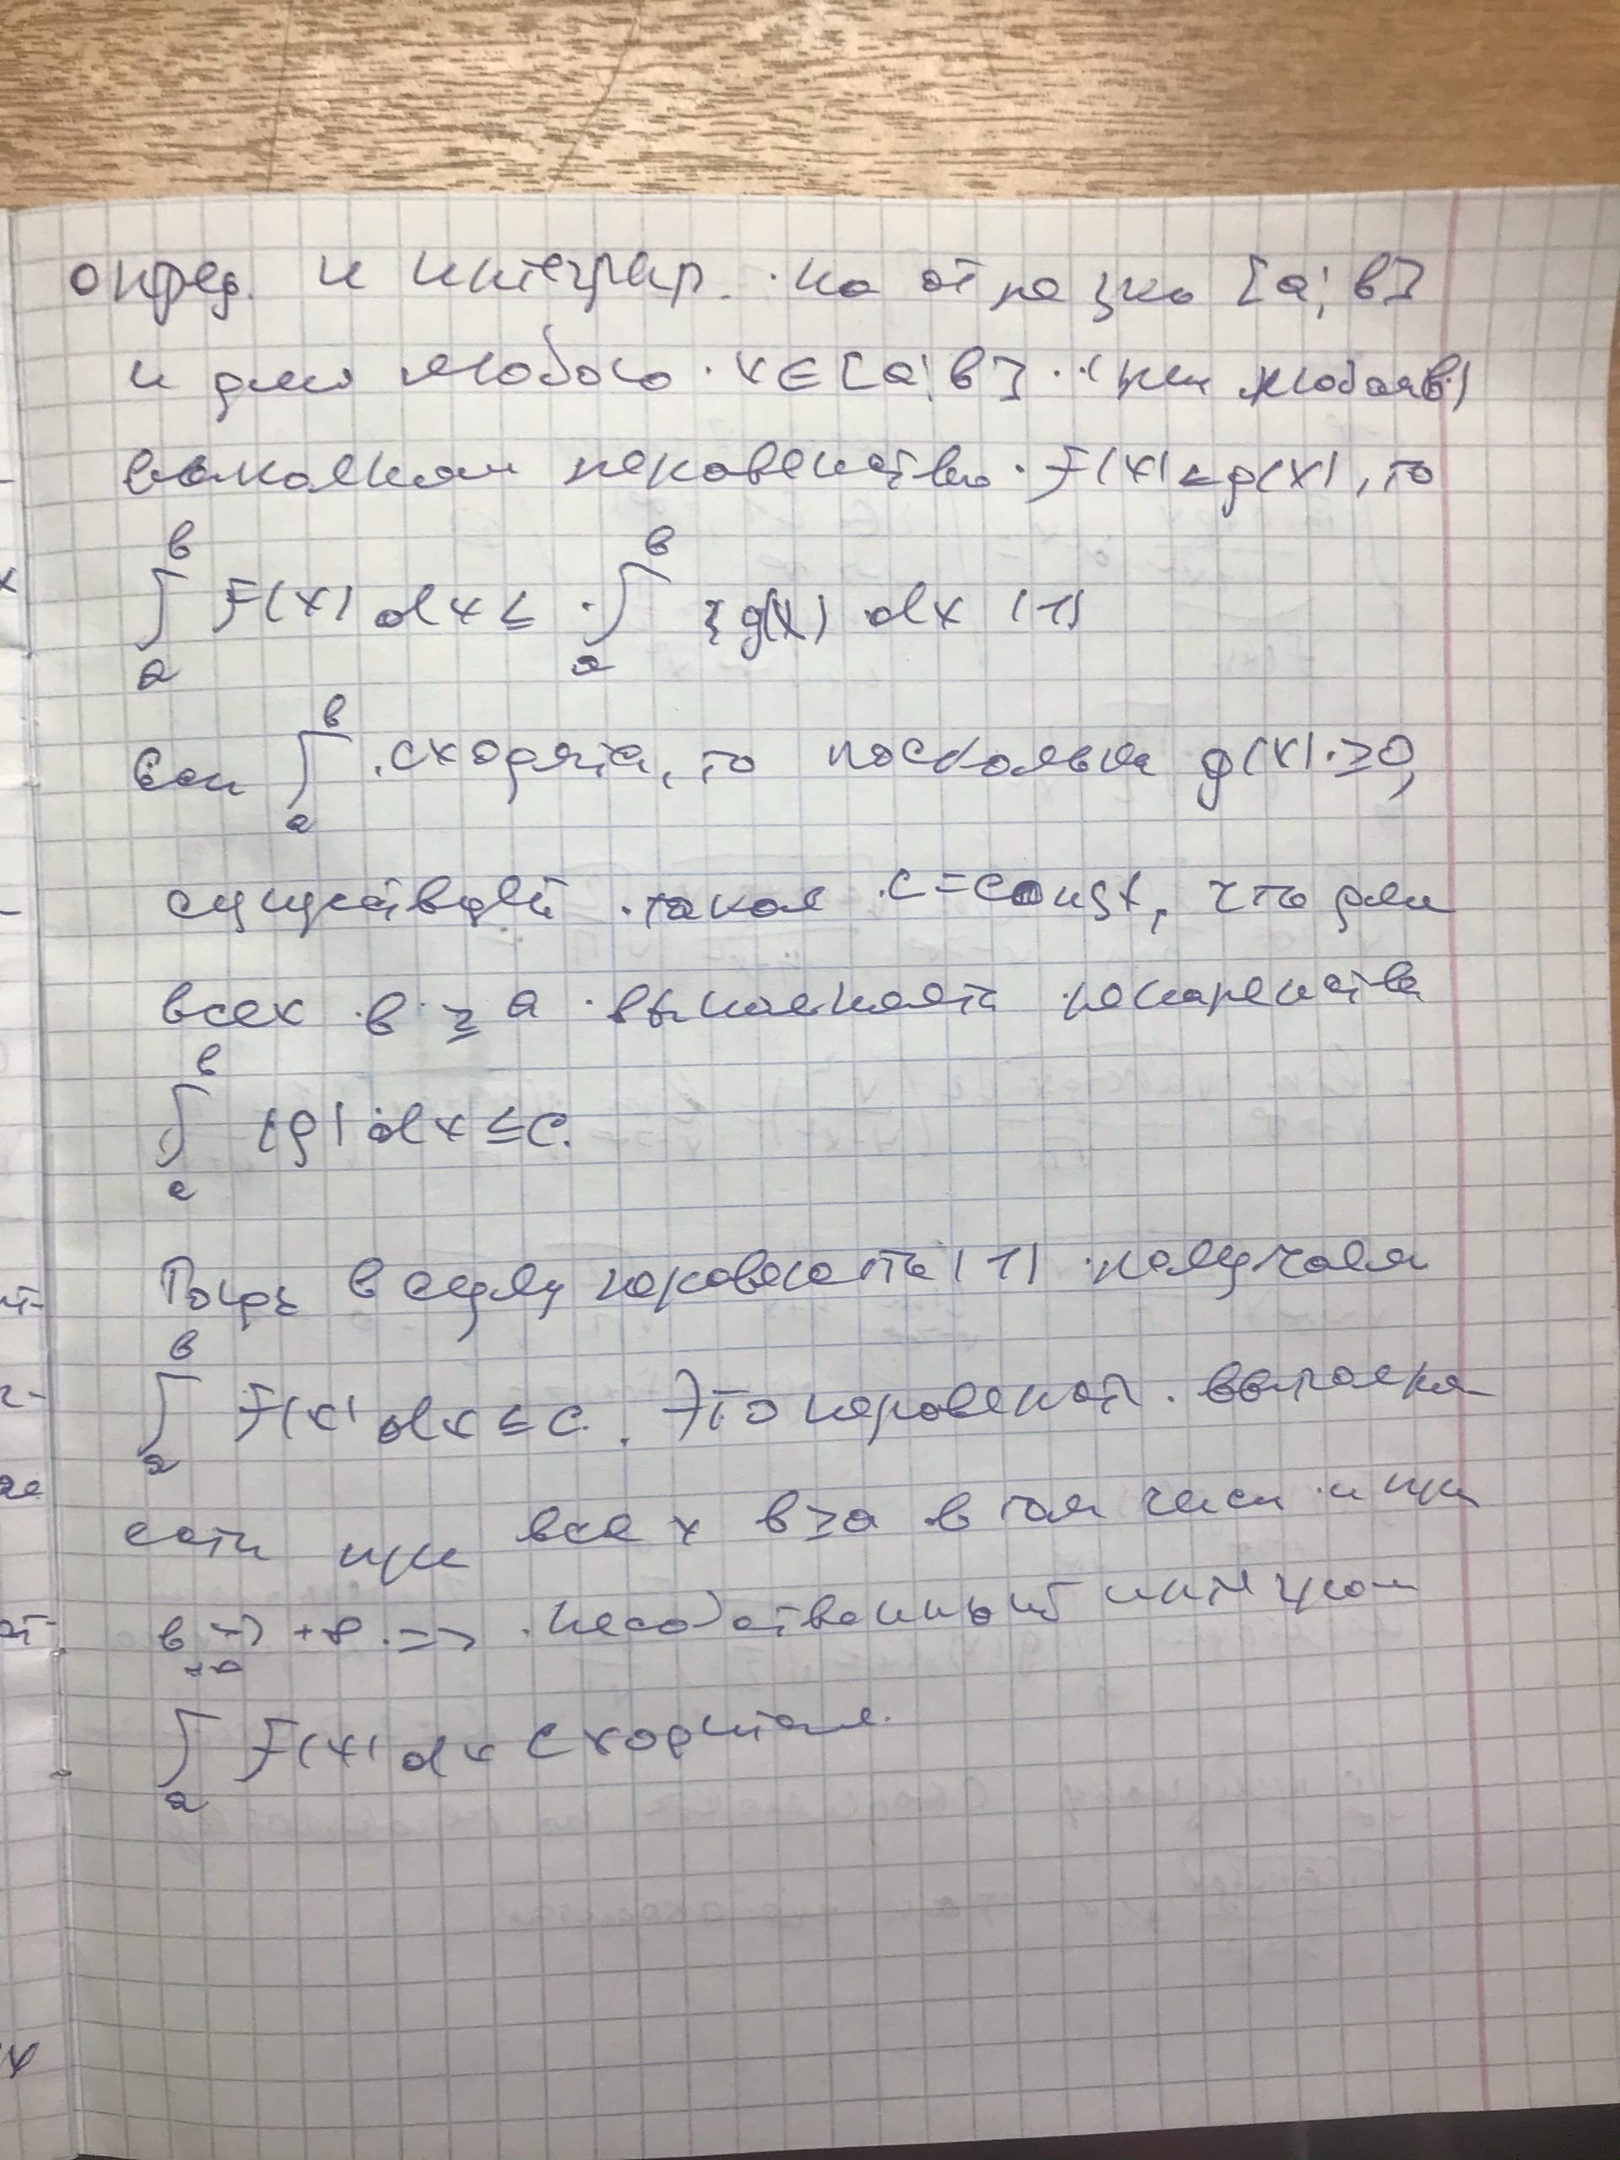 опред. и интегрир. на отрезке [a; в]
и для любого x ∈ [a; в] (при любом в)
выполнен неравенство F(x) ≤ g(x), то
∫ₐᵇ F(x) dx ≤ ∫ₐᵇ g(x) dx (1)
Если ∫ₐᵇ сходится, то поскольку g(x) ≥ 0,
существует такая c = const, что для
всех в ≥ a выполняется неравенство
∫ₐᵇ (g) dx ≤ c.
Тогда в силу неравенства (1) получаем
∫ₐᵇ F(x) dx ≤ c. Это неравенст. выполня
ется при всех в ≥ a в том числе и при
в → +∞ => несобственный интеграл
+∞
∫ₐ F(x) dx сходится.